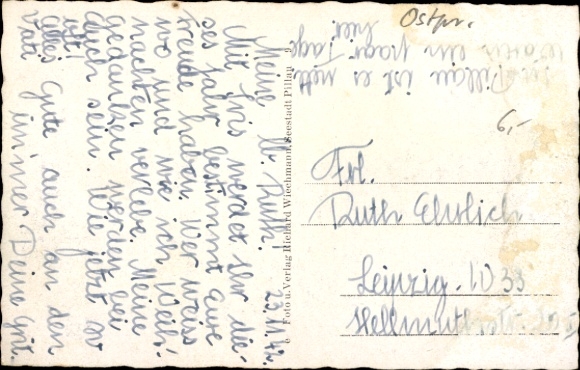 Ostpr.
In Pillau ist es nett
waren ein paar Tage
hier.
6,-
23.11.42.
Meine lb. Ruth!
Mit Iris werdet Ihr die-
ses Jahr bestimmt Eure
Freude haben. Wer weiss
wo und wie ich Weih-
nachten verlebe. Meine
Gedanken werden bei
Euch sein. Wie jetzt so
oft!
Alles Gute auch an den
Vati immer Deine
Foto u. Verlag Richard Wiechmann, Seestadt Pillau 2
Frl.
Ruth Ehrlich
Leipzig. W 33